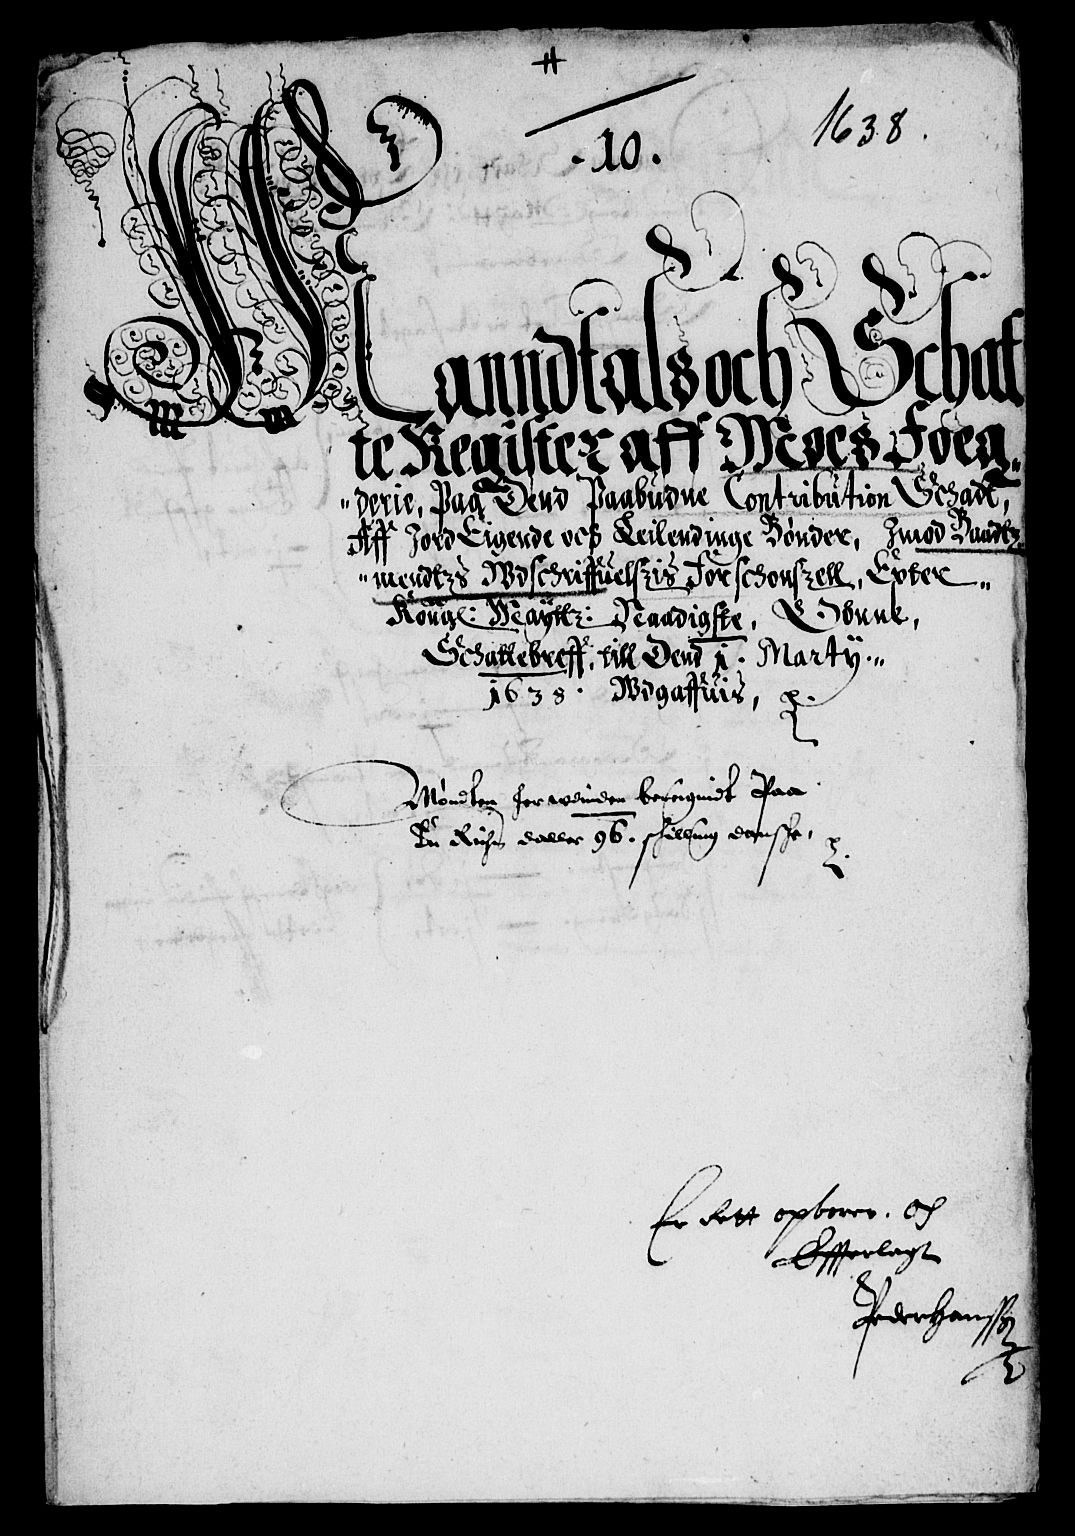 1638.
10.
Manndtals och Schat
te Register aff Moes Foeg„
„derie, Paa Dend Paabudne Contribution Schadt,
Aff Jord Eigende och Leilendinge Bønder, Imod Baadtz
„mendtzs Wdschriffuelszis Forschonszell, Epter„
Konngl: Maÿttz: Naadigste,
Schattebreff, till Dend 1. Martÿ.„
1638. Wdgaffuis,
Møndten her wdinden beregnidt Paa
En Richs daller 96. schilling dansche,
Er Rett opboren. Och
Efferlagt
Peder Hanssøn